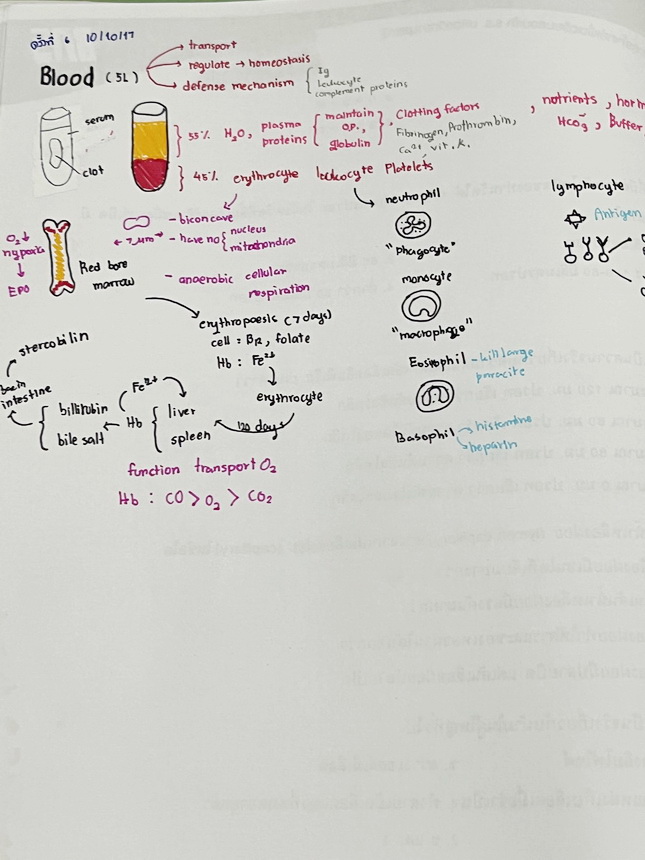 ครั้งที่ 6 10/10/17
transport
Blood (5L) regulate → homeostasis
defense mechanism { Ig
leukocyte
complement proteins
serum
clot
55% H₂O, plasma proteins { maintain O.P., globulin } , Clotting factors
Fibrinogen, Prothrombin,
Ca²⁺, vit. K.
, nutrients , horm
HCO₃⁻, Buffer
45% erythrocyte leukocyte Platelets
O₂↓
hypoxia
EPO
Red bone
marrow
- biconcave
7 μm - have no { nucleus
mitochondria
- anaerobic cellular
respiration
erythropoesis (7 days)
cell : B12, folate
Hb : Fe²⁺
erythrocyte
120 days
liver
spleen
Fe²⁺
Hb
billirubin
bile salt
intestine
stercobilin
function transport O₂
Hb : CO > O₂ > CO₂
neutrophil
"phagocyte"
monocyte
"macrophage"
Eosinophil - kill large
paracite
Basophil → histamine
→ heparin
lymphocyte
Antigen